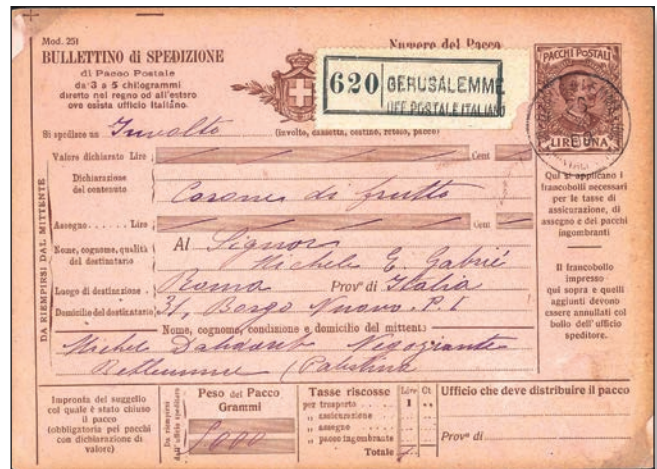 Mod. 251
BULLETTINO di SPEDIZIONE
di Pacco Postale
da 3 a 5 chilogrammi
diretto nel regno od all'estero
ove esista ufficio Italiano.
Numero del Pacco
620 GERUSALEMME
UFF. POSTALE ITALIANO
PACCHI POSTALI
LIRE UNA
Si spedisce un Involto (involto, cassetta, cestino, rotolo, pacco)
Valore dichiarato Lire Cent
Dichiarazione
del contenuto Corone di frutto
Assegno . . . . . Lire Cent
Nome, cognome, qualità
del destinatario Al Signor
Michele E. Gabrié
Luogo di destinazione . Roma Provª di Italia
Domicilio del destinatario 31, Borgo Nuovo. P. I
Nome, cognome, condizione e domicilio del mittente
Michele Negoziante
Betlemme (Palestina
DA RIEMPIRSI DAL MITTENTE
Qui si applicano i
francobolli necessari
per le tasse di
assicurazione, di
assegno e dei pacchi
ingombranti
Il francobollo
impresso
qui sopra e quelli
aggiunti devono
essere annullati col
bollo dell'ufficio
speditore.
Impronta del suggello
col quale è stato chiuso
il pacco
(obbligatoria pei pacchi
con dichiarazione di
valore)
Da riempirsi
dall'ufficio speditore
Peso del Pacco
Grammi
5000
Tasse riscosse Lire Ct
per trasporto . . . . 1 ..
„ assicurazione . .
„ assegno . . . .
„ pacco ingombrante
Totale 1
Ufficio che deve distribuire il pacco
Provª di